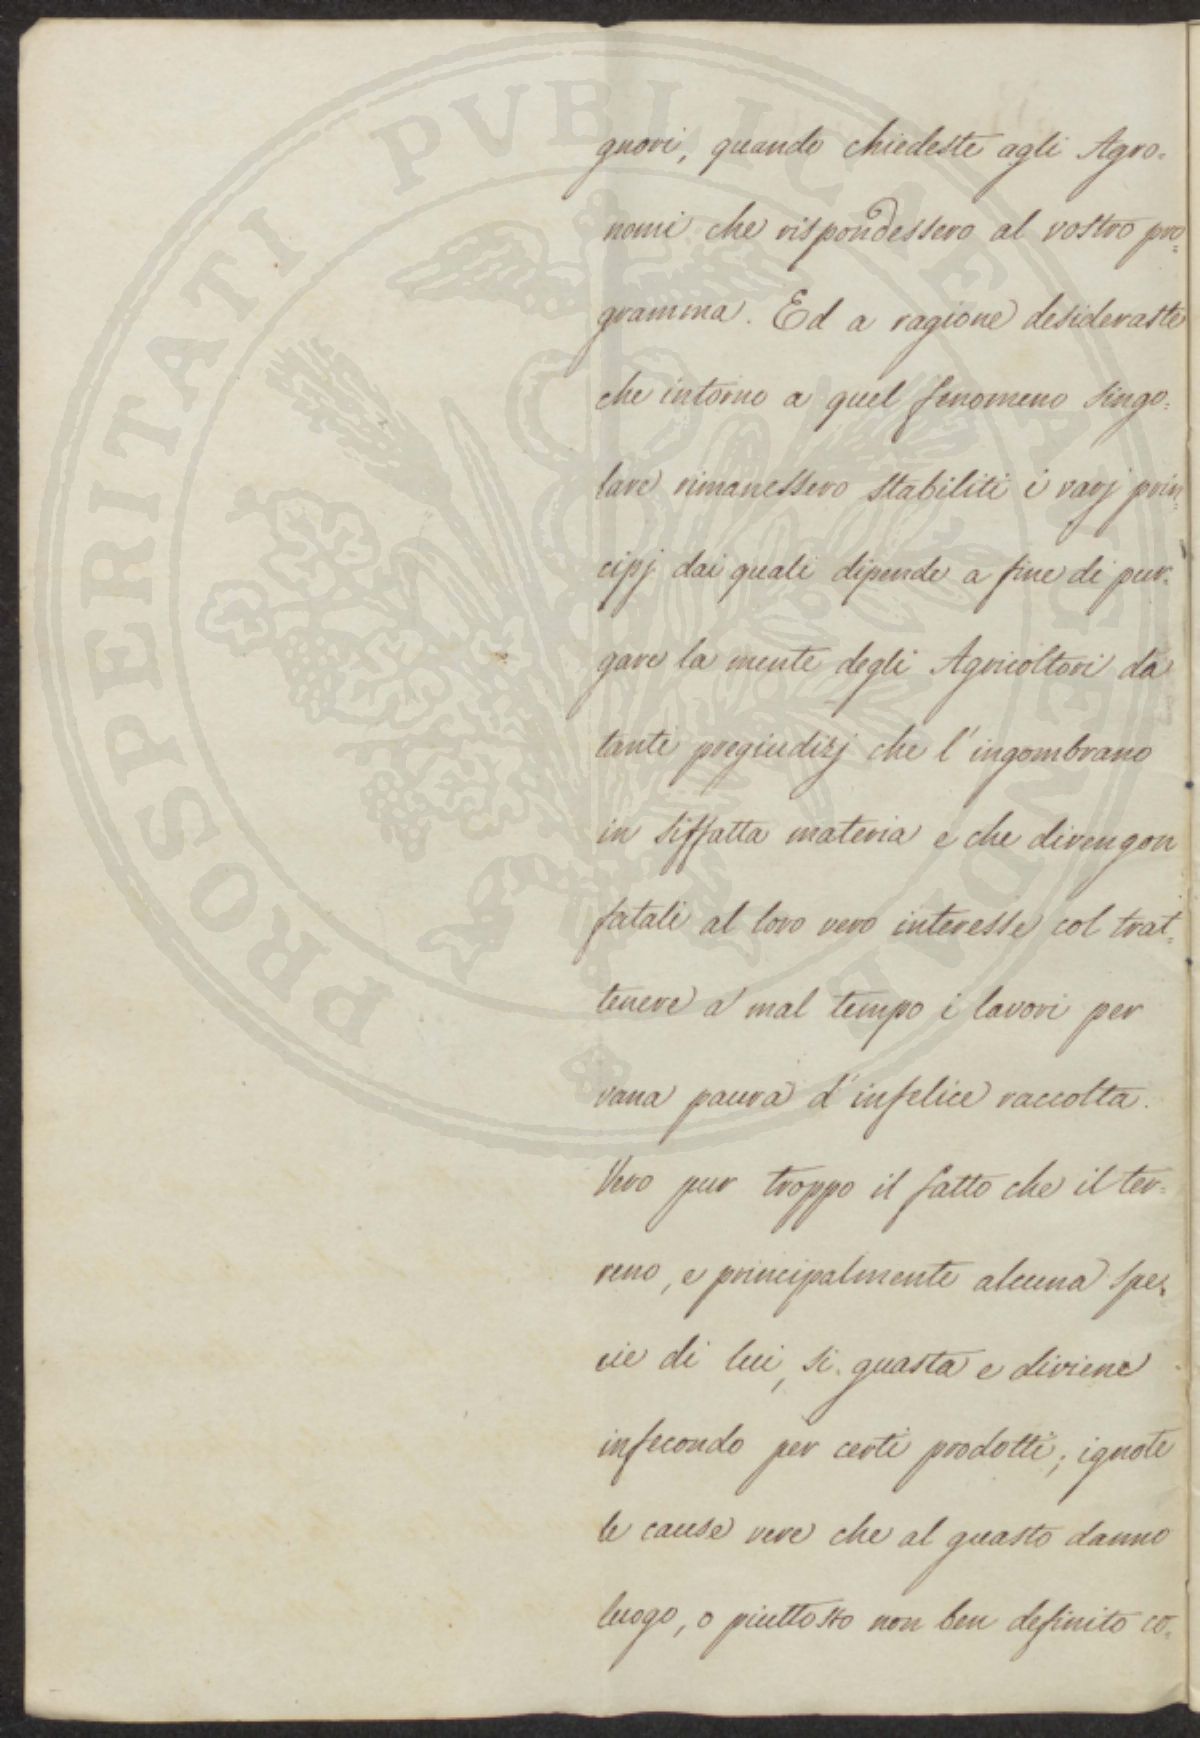 PROSPERITATI PUBLICAE AUGENDAE
gnori, quando chiedeste agli Agro=
nomi che rispondessero al vostro pro=
gramma. Ed a ragione desideraste
che intorno a quel fenomeno singo=
lare rimanessero stabiliti i varj prin=
cipj dai quali dipende a fine di pur=
gare la mente degli Agricoltori da
tanti pregiudizj che l'ingombrano
in siffatta materia e che divengon
fatali al loro vero interesse col trat=
tenere a mal tempo i lavori per
vana paura d'infelice raccolta.
Vero pur troppo il fatto che il ter=
reno, e principalmente alcuna spe=
cie di lui, si guasta e diviene
infecondo per certi prodotti; ignote
le cause vere che al guasto danno
luogo, o piuttosto non ben definito co=